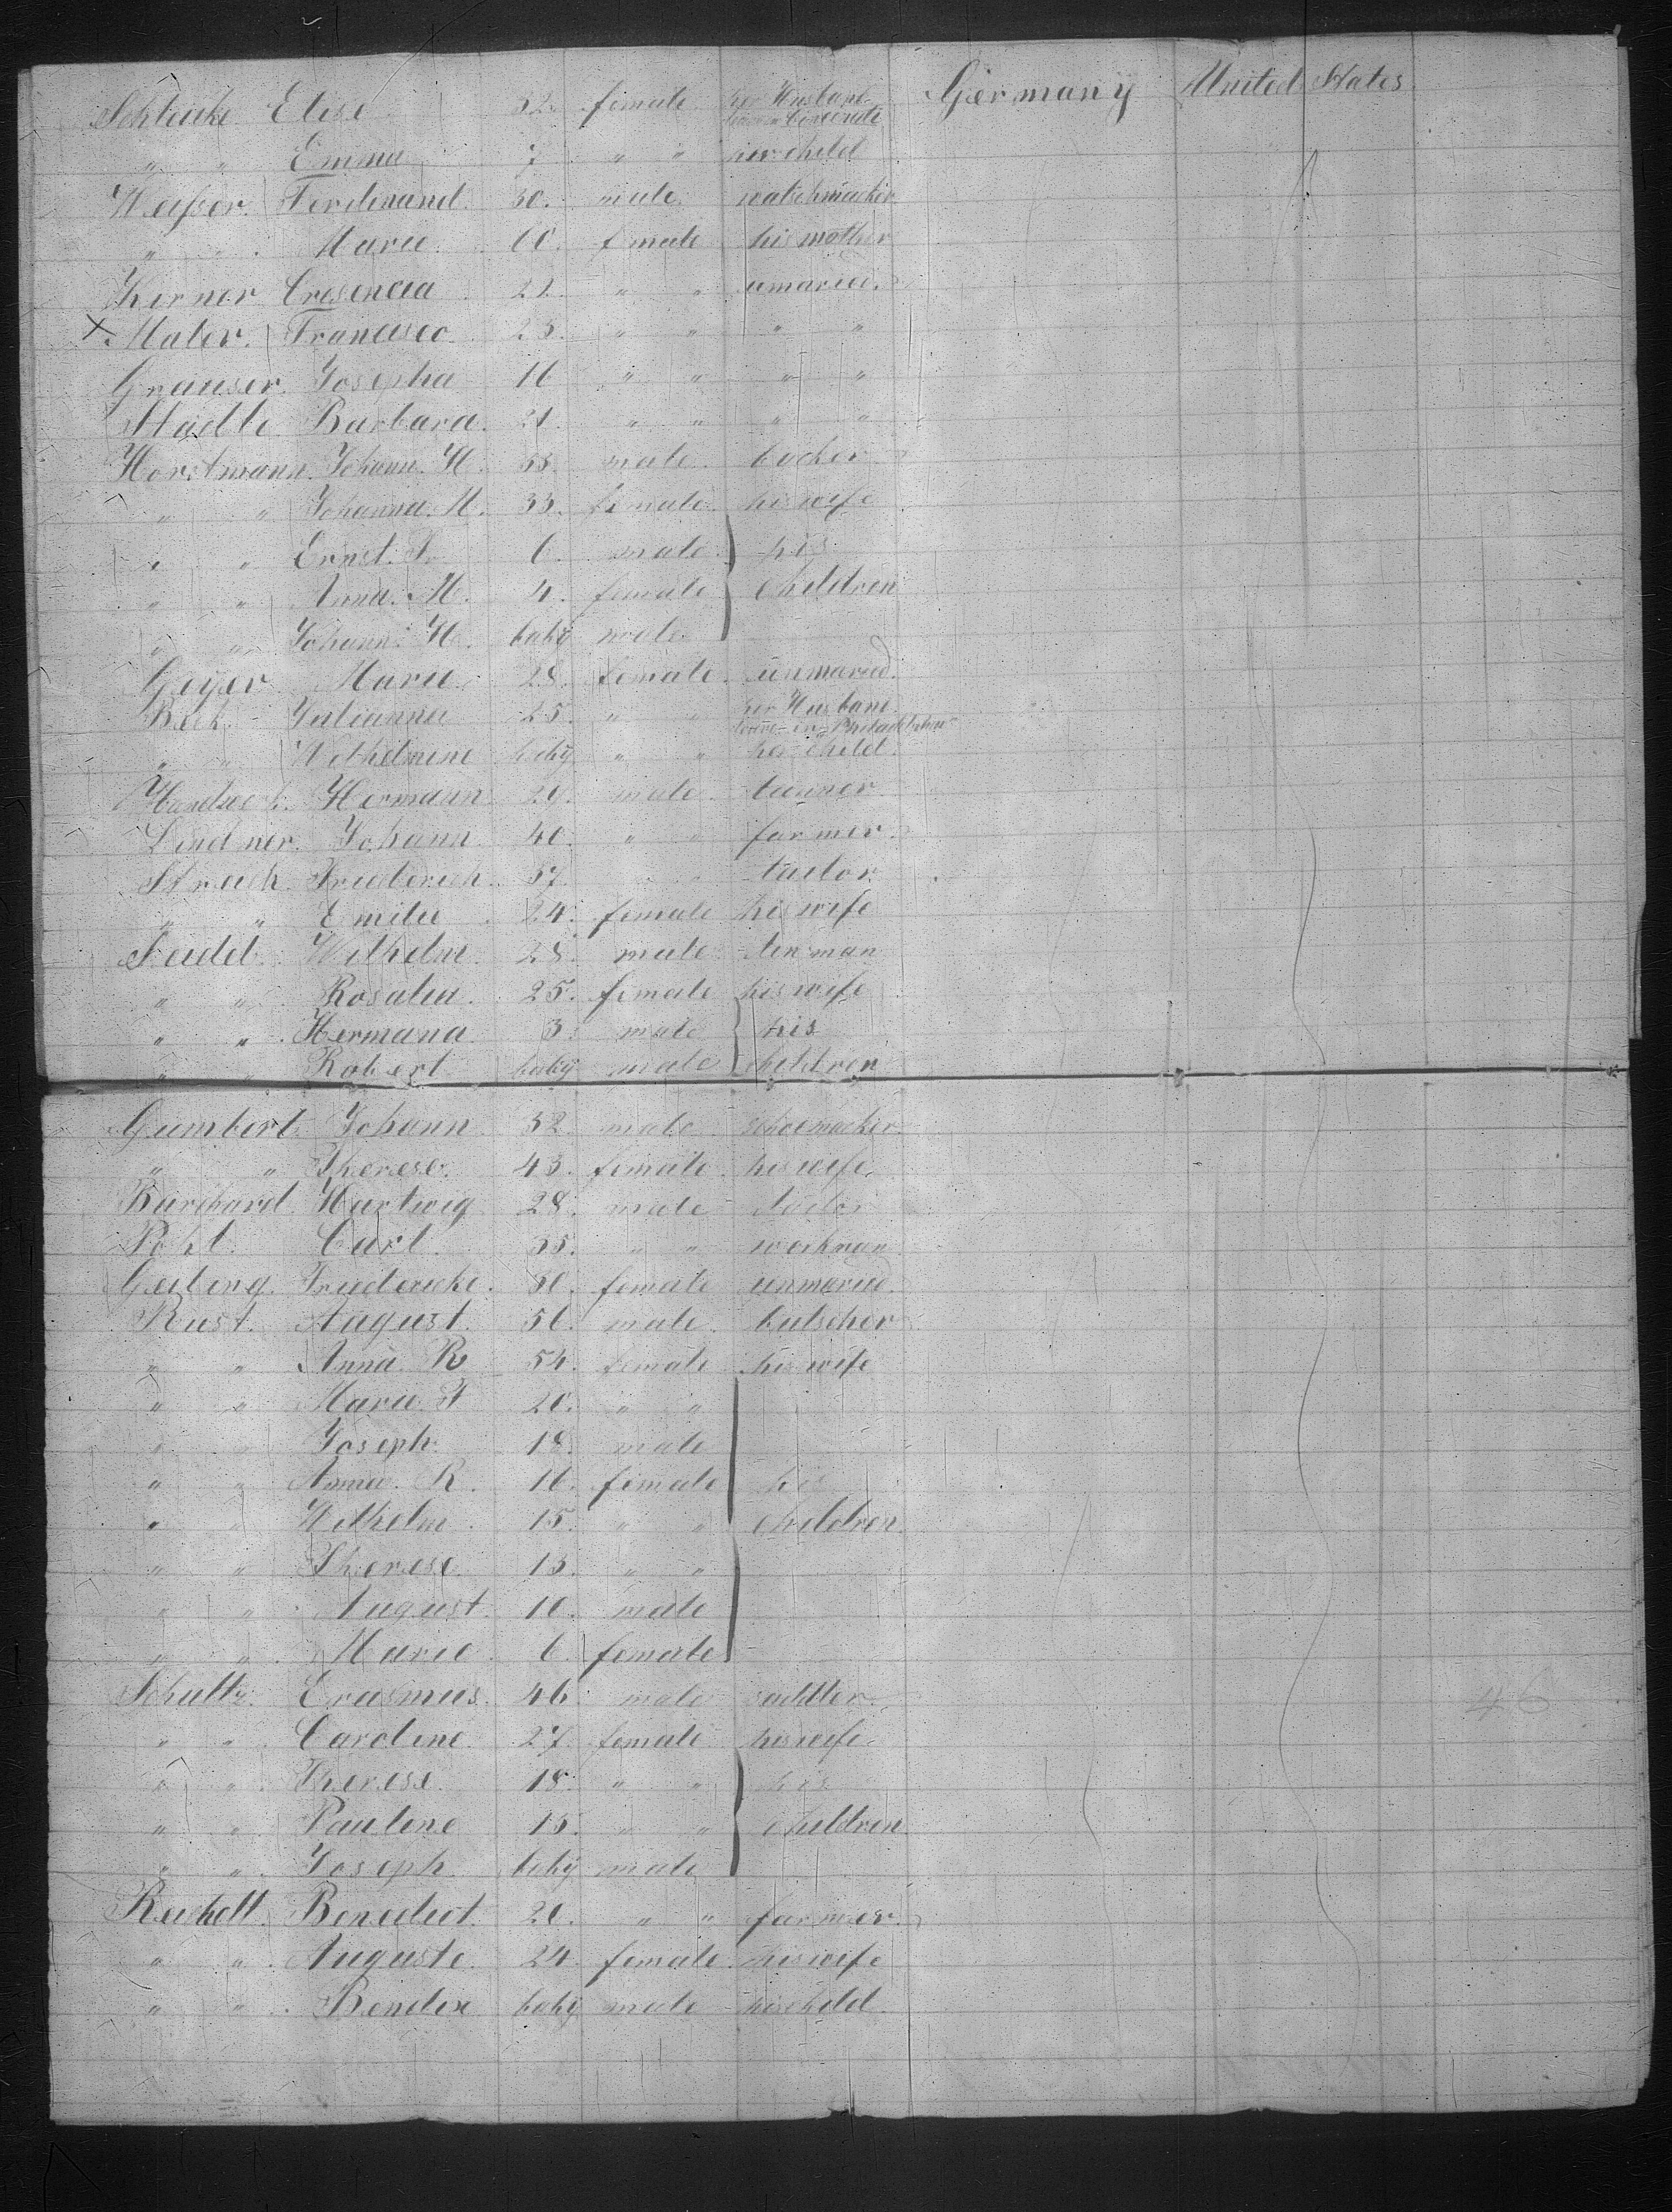 Schleicke Elise 32. female her Husband Germany United States
" " Emma 7 " " her child
Weifser. Ferdinand. 30. male watchmacker
" " Marie. 60. female his mother
Kerner Cresencia 21. " " unmaried.
x Maler. Francisco. 23. " " " "
Grauser. Josepha 16 " " " "
Stadle Barbara. 21. " " " "
Horstmann. Johann. H. 35. male. bocker
" " Johanna. M. 33. female. his wife
" " Ernst. 6. male his
" " Anna. M. 4. female children
" " Johann. H. baby male.
Geyer Marie. 28. female. unmaried.
Beck. Julianna 25. " " her Husband in Philadelphia
" " Wilhelmine baby " " her child.
Handwerk. Hermann 29. male. tanner
Lindner. Johann 40. " " farmer.
Strach. Friederich. 37. " " tailor.
" " Emilie 24. female his wife
Seidel. Wilhelm. 28. male tinsman
" " Rosalia. 25. female his wife
" " Hermann 3. male his
" " Robert baby male children
Gumbert Johann 52 male schoemacker.
" " Therese. 43. female his wife.
Burchard Hartwig 28. male tailor
Pohl. Carl. 35. " " workman
Geiberg. Friedericke. 30. female unmaried.
Rust. August. 56. male. butscher
" " Anna R 54. female his wife
" " Marie. T 20. " "
" " Joseph 18. male
" " Anna. R. 16. female his
" " Wilhelm 15. " " children.
" " Therese. 13. " "
" " August. 10. male
" " Marie 6. female
Schultz. Erasmus. 46. male saddler. 46
" " Caroline 27. female his wife.
" " Therese. 18. " " his
" " Pauline 15. " " children
" " Joseph. baby male
Reichelt. Benedict. 20. " " farmer.
" " Auguste. 24. female. his wife
" " Bendix baby male his child.